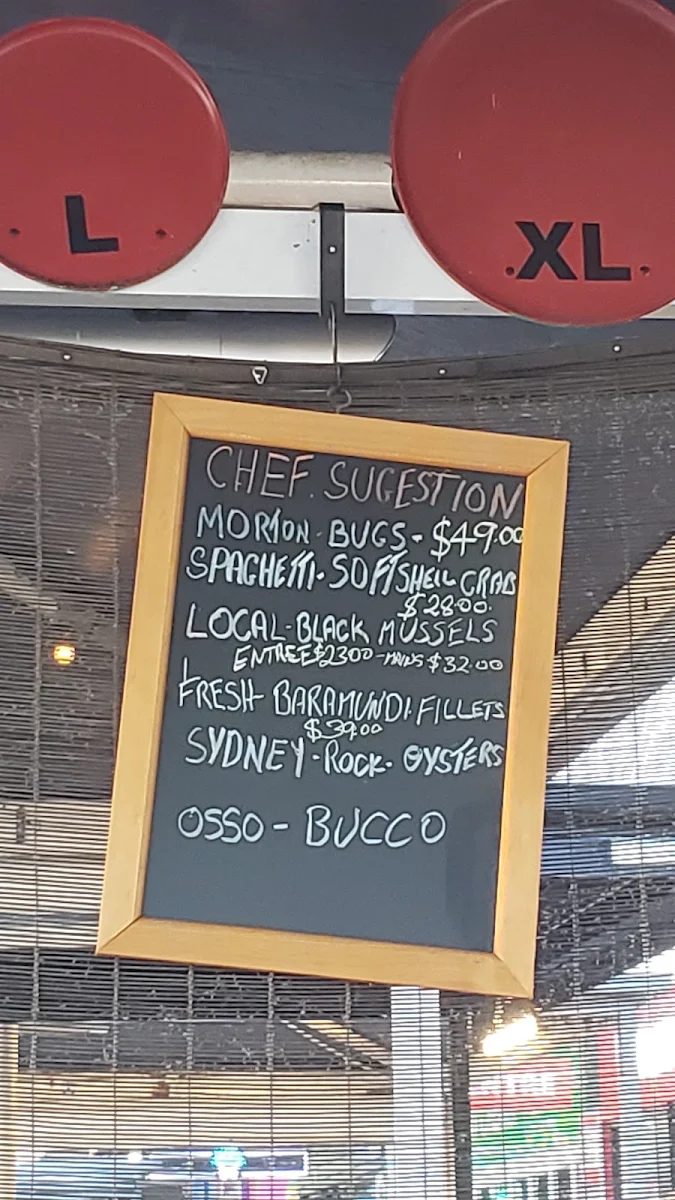 L
.XL.
CHEF. SUGESTION
MORTON - BUGS - $49.00
SPAGHETTI - SOFT SHELL CRAB
$28.00.
LOCAL - BLACK MUSSELS
ENTREE $23.00 - MAINS $32.00
FRESH BARAMUNDI. FILLETS
$39.00
SYDNEY - ROCK - OYSTERS
OSSO - BUCCO